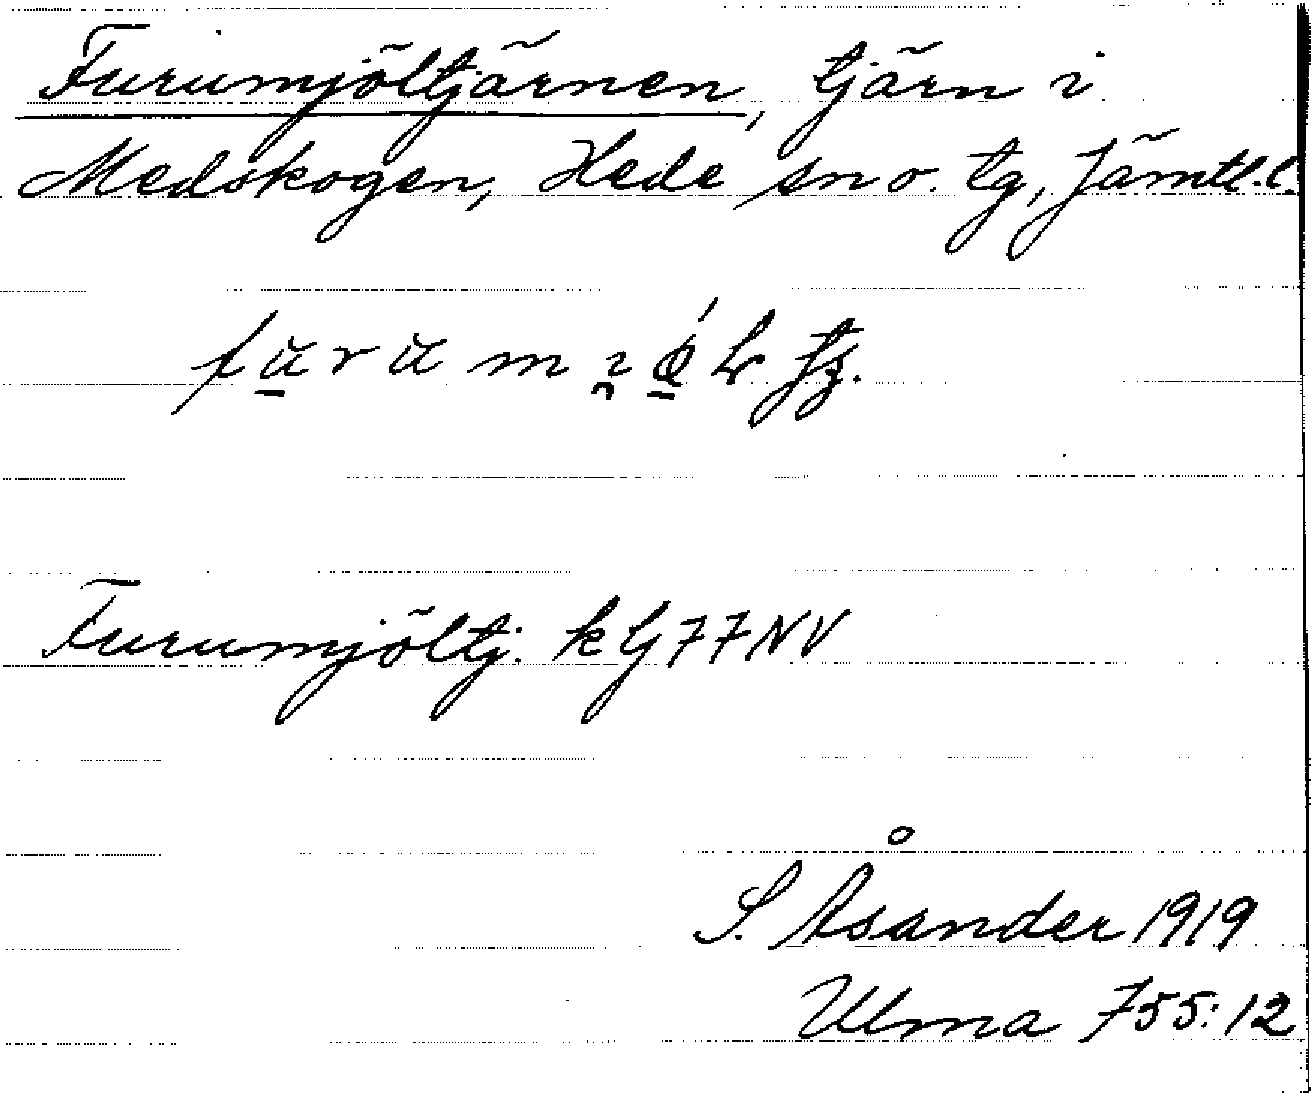 Furumjöltjärnen, tjärn i
Medskogen, Hede sn o. tg, Jämtl. l.
Furumjöltj. k G77NV
S. Åsander 1919
Ulma 755:12